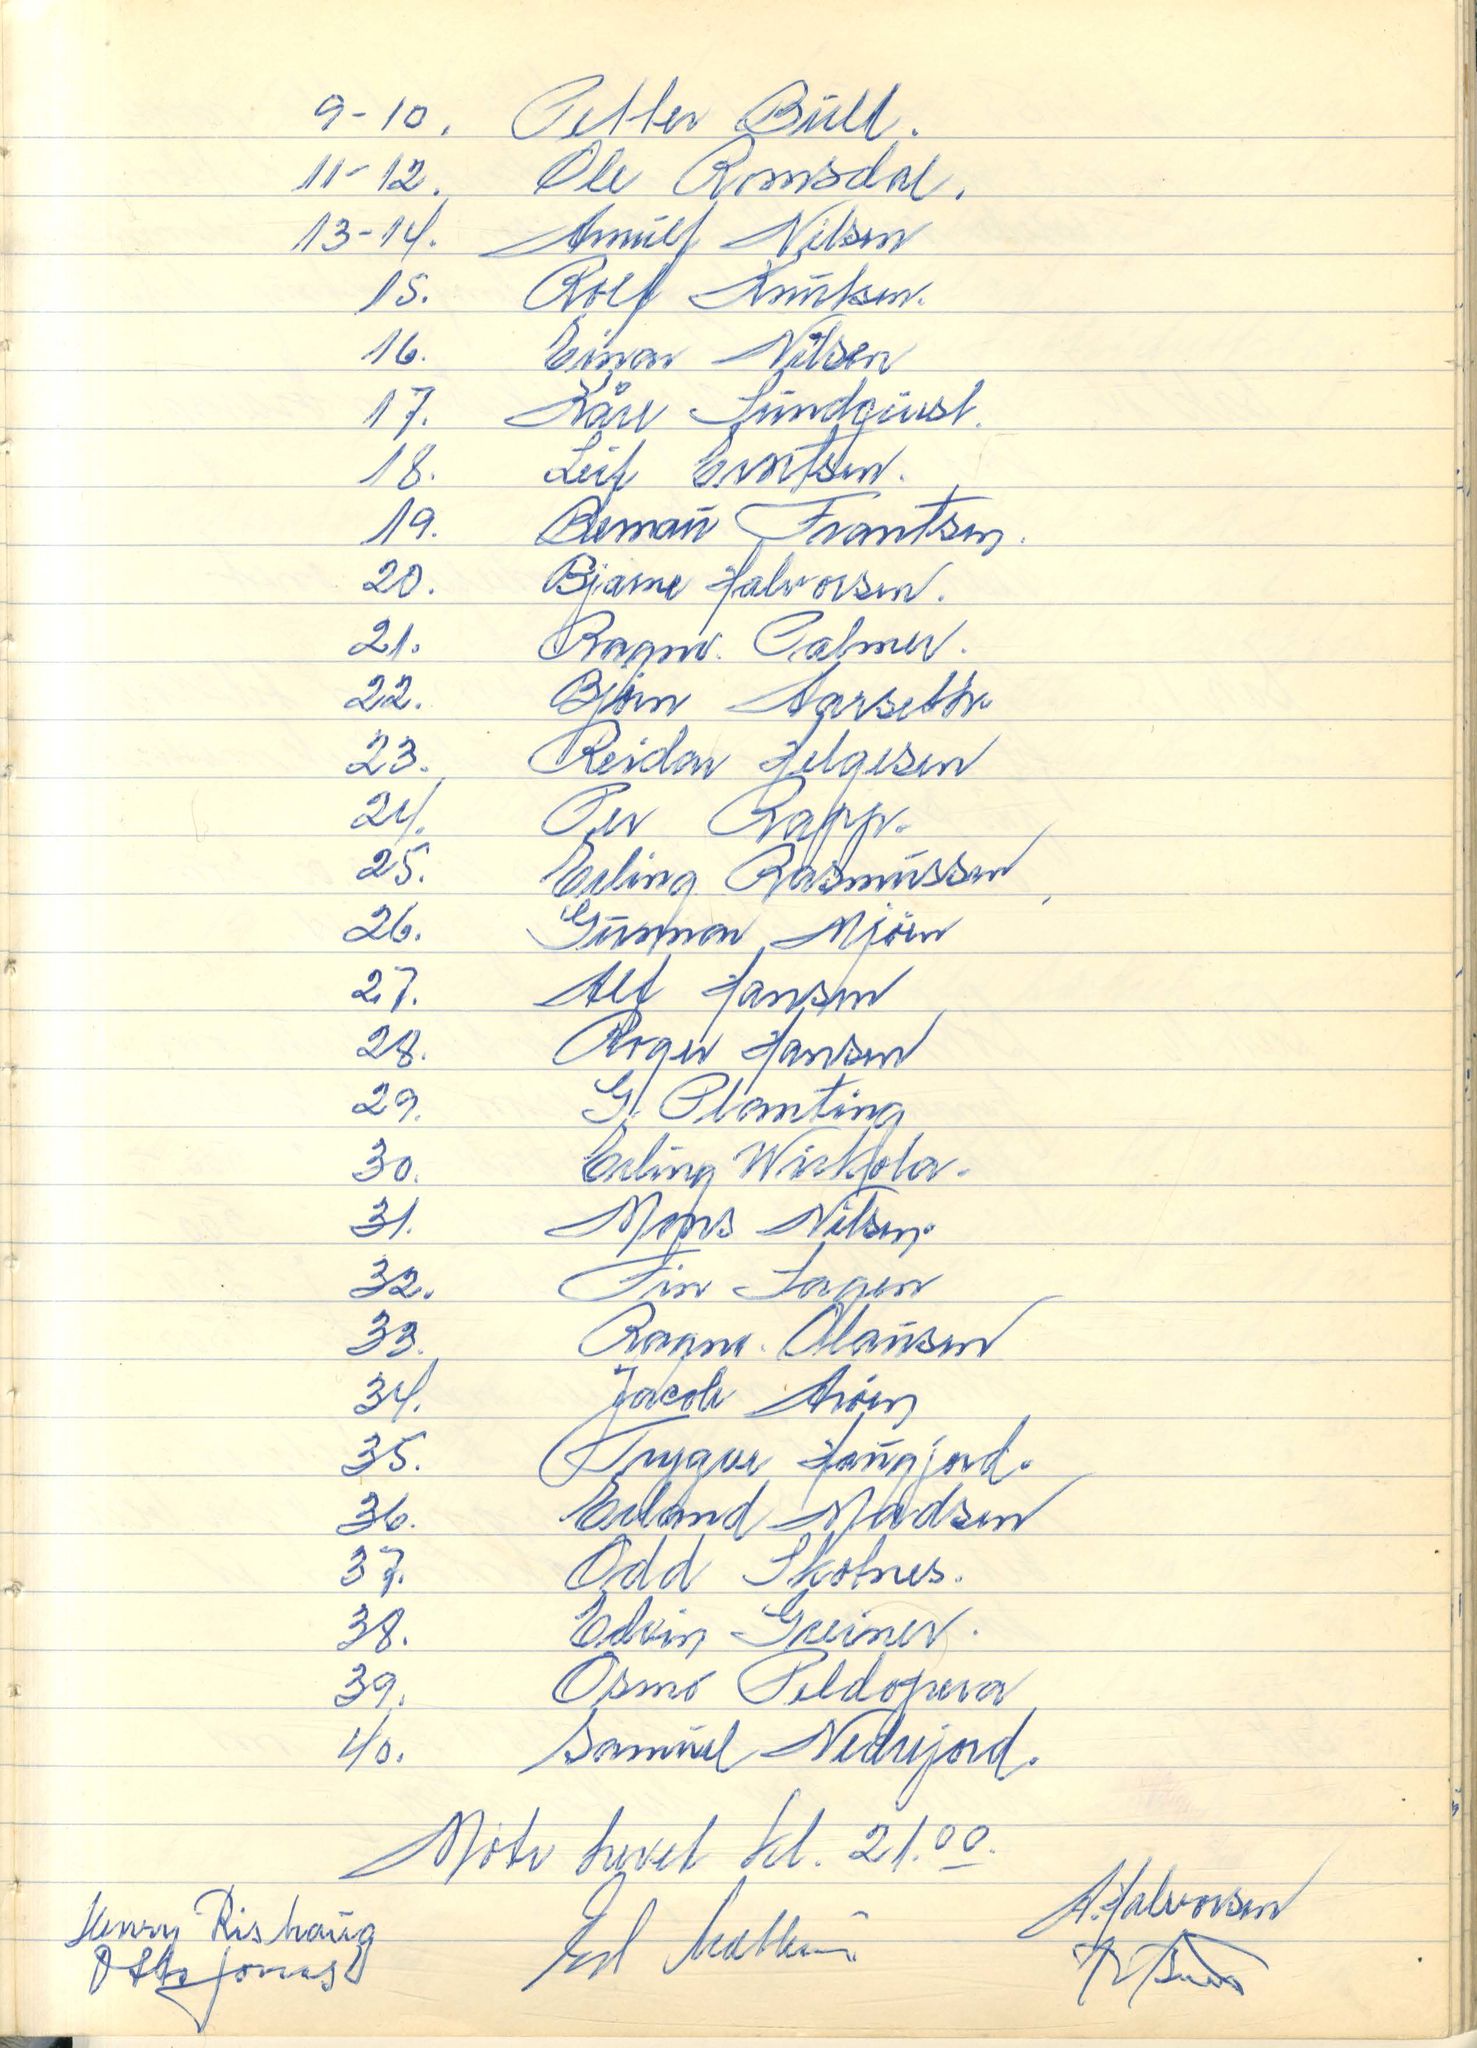 9-10. Petter Bull.
11-12. Ole Romsdal.
13-14. Arnulf Nilsen
15. Rolf Knutsen.
16. Einar Nilsen
17. Kåre Lundquist.
18. Leif Evertsen.
19. Frantsen.
20. Bjarne Halvorsen.
21. Ragnv. Palmer.
22. Björn Aarseth.
23. Reidar Helgesen
24. Per Rapp.
25. Erling Rasmussen
26. Gunnar Mjöen
27. Alf Hansen
28. Roger Hansen
29. G. Planting
30. Erling Wichola.
31. Mons Nilsen.
32. Fin Hagen
33. Ragnv. Olaussen
34. Jacob Aröen
35. Trygve Haugjord.
36. Erland Madsen
37. Odd Skolnes.
38. Edvin Greiner.
39. Osmo Peldoperä
40. Samuel Nedrejord.
Möte hevet kl. 21.00.
Henry Rishaug
A. Halvorsen
Otto Jonas